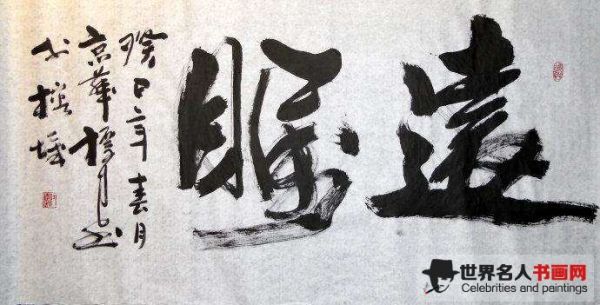 遠瞩
癸巳年春月
京華
世界名人书画网
Celebrities and paintings